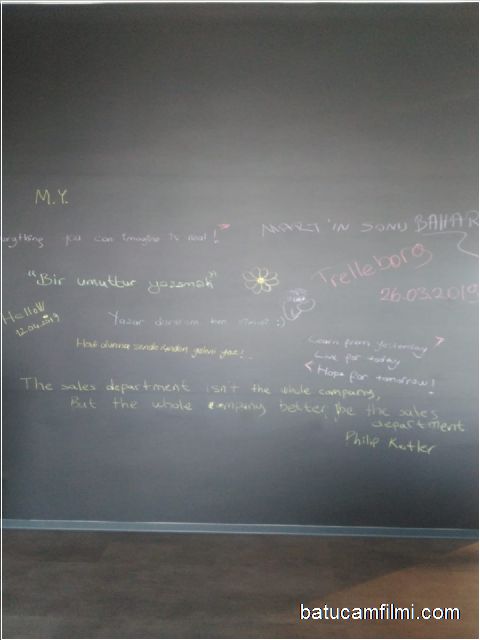 M.Y.
you can imagine is real!
MART'IN SONU BAHAR
"Bir umuttur yaşamak"
Trelleborg
26.03.2019
Hello
12.04.2019
Yazar
Learn from yesterday
Live for today
Hope for tomorrow!
The sales department isn't the whole company,
But the whole company better be the sales
department
Philip Kotler
batucamfilmi.com